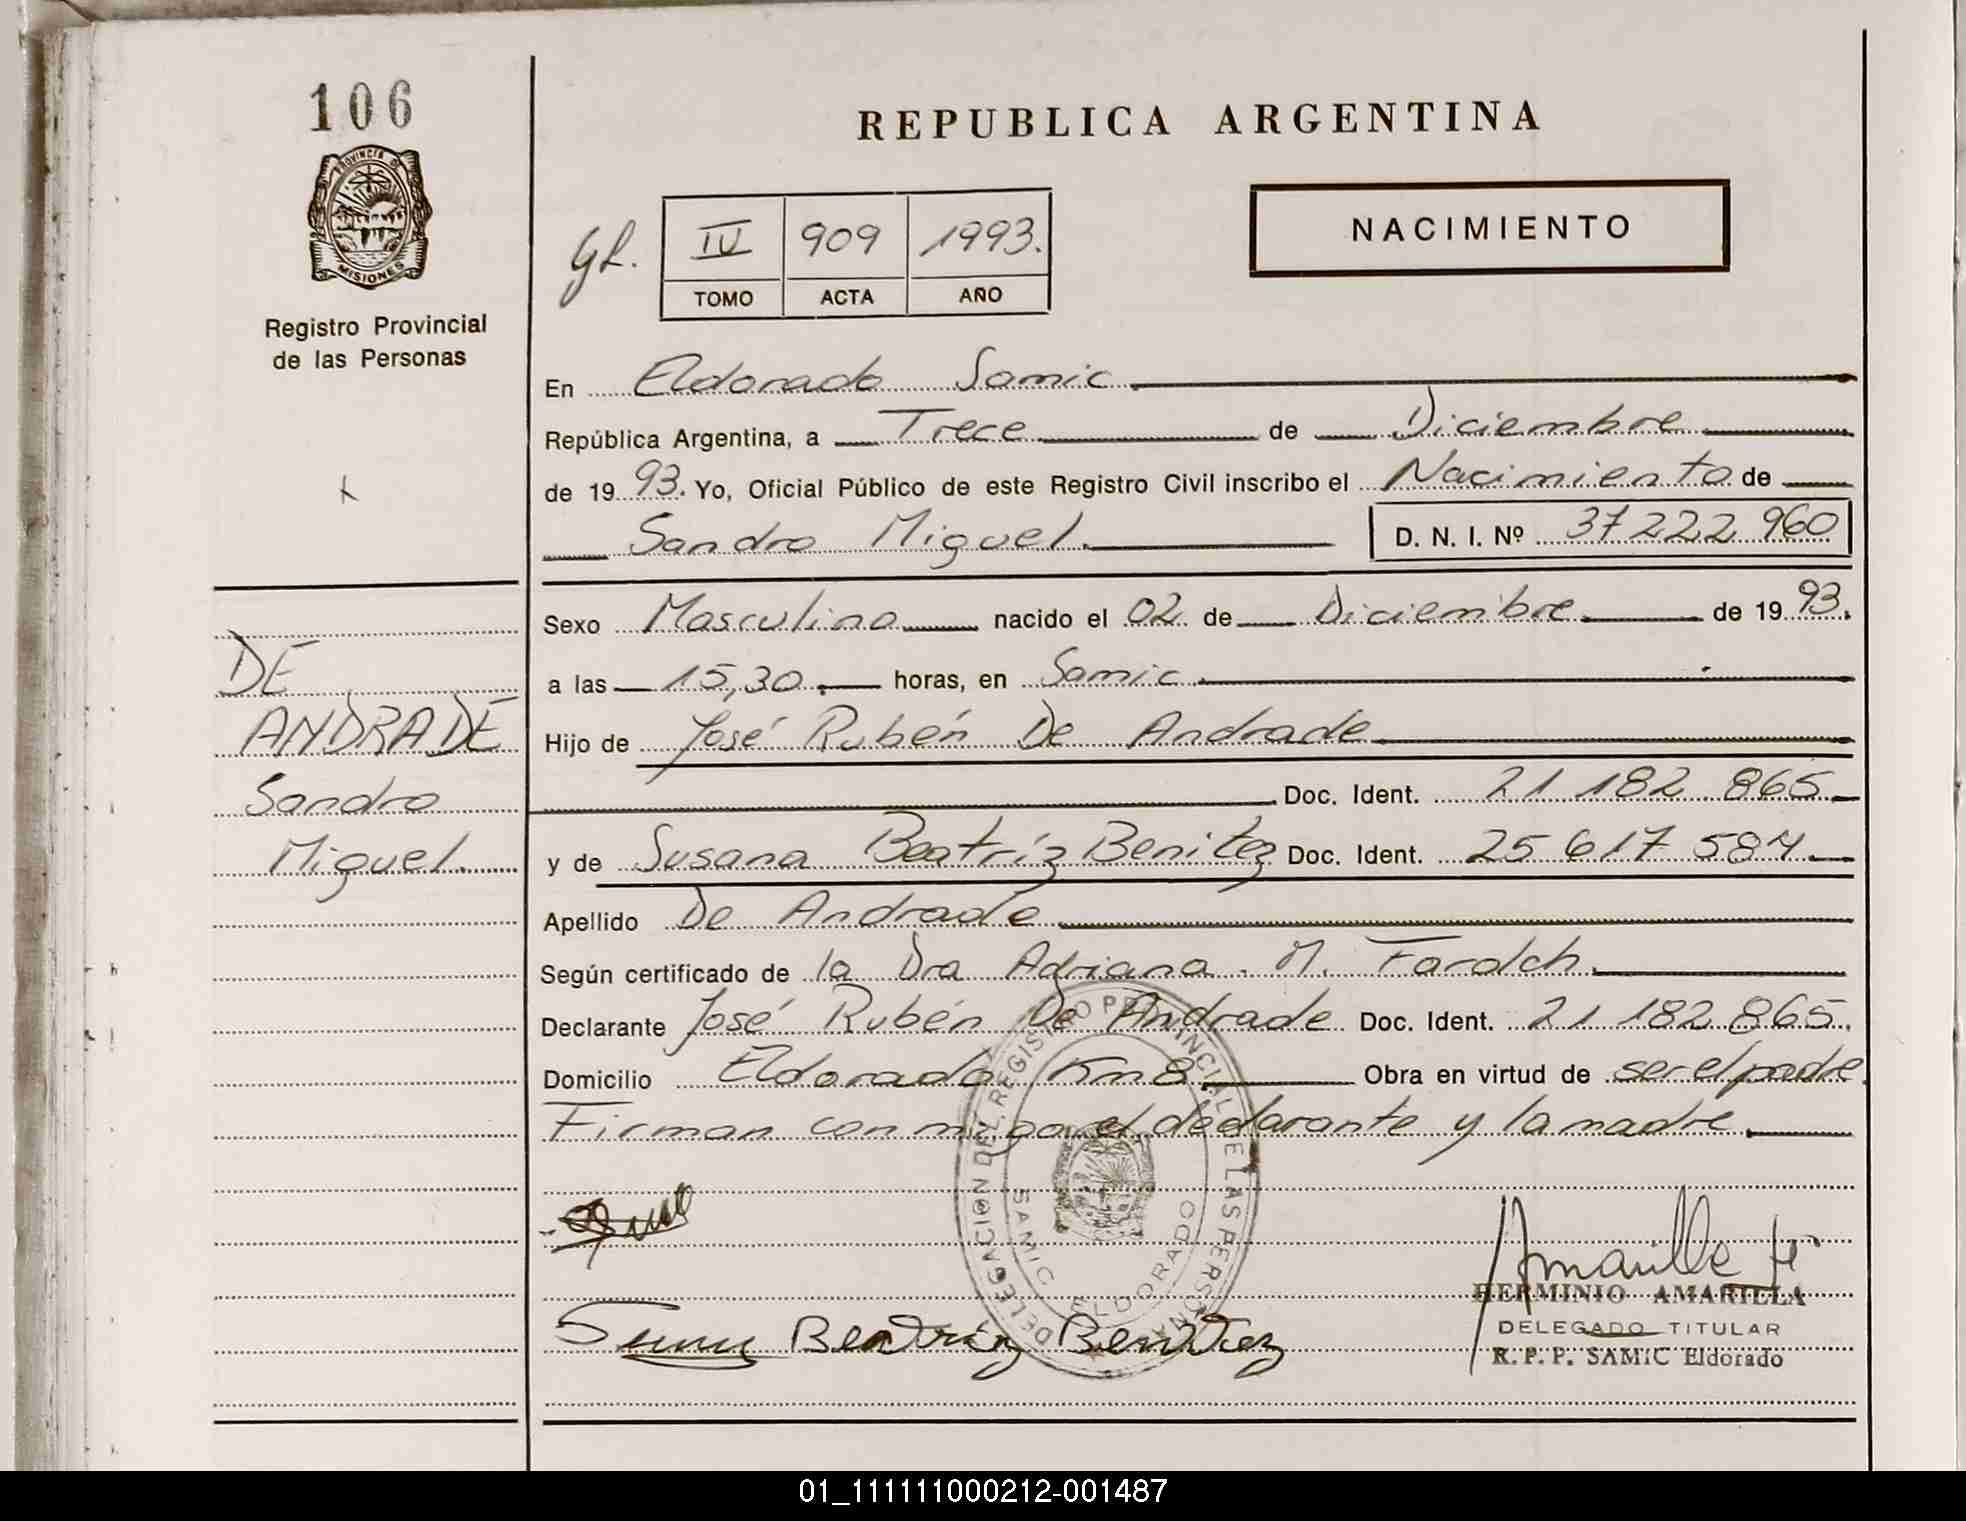 106
PROVINCIA DE
MISIONES
Registro Provincial
de las Personas
DE
ANDRADE
Sandro
Miguel.
REPUBLICA ARGENTINA
NACIMIENTO
IV 909 1993.
TOMO ACTA AÑO
En Eldorado Samic
República Argentina, a Trece de Diciembre
de 19 93. Yo, Oficial Público de este Registro Civil inscribo el Nacimiento de
Sandro Miguel. D. N. I. Nº 37 222 960
Sexo Masculino nacido el 02 de Diciembre de 19 93.
a las 15,30. horas, en Samic.
Hijo de José Rubén De Andrade
Doc. Ident. 21 182 865
y de Susana Beatríz Benitez Doc. Ident. 25 617 584
Apellido De Andrade
Según certificado de la Dra Adriana. M.
Declarante José Rubén De Andrade Doc. Ident. 21 182 865.
Domicilio Eldorado Km 8 Obra en virtud de ser el padre.
Firman conmigo el declarante y la madre.
DELEGACION DEL REGISTRO PROVINCIAL DE LAS PERSONAS
SAMIC ELDORADO
Amarilla H
HERMINIO AMARILLA
DELEGADO TITULAR
R. P. P. SAMIC Eldorado
Beatriz Benitez
01_111111000212-001487